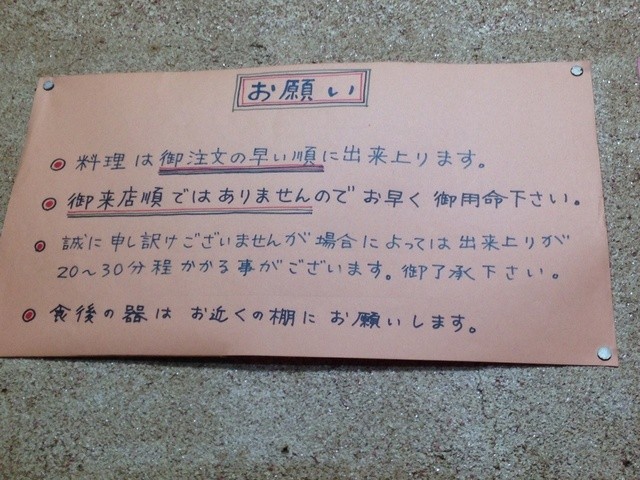 お願い
料理は御注文の早い順に出来上ります。
御来店順ではありませんのでお早く御用命下さい。
誠に申し訳けございませんが場合によっては出来上りが
20〜30分程かかる事がございます。御了承下さい。
食後の器はお近くの棚にお願いします。